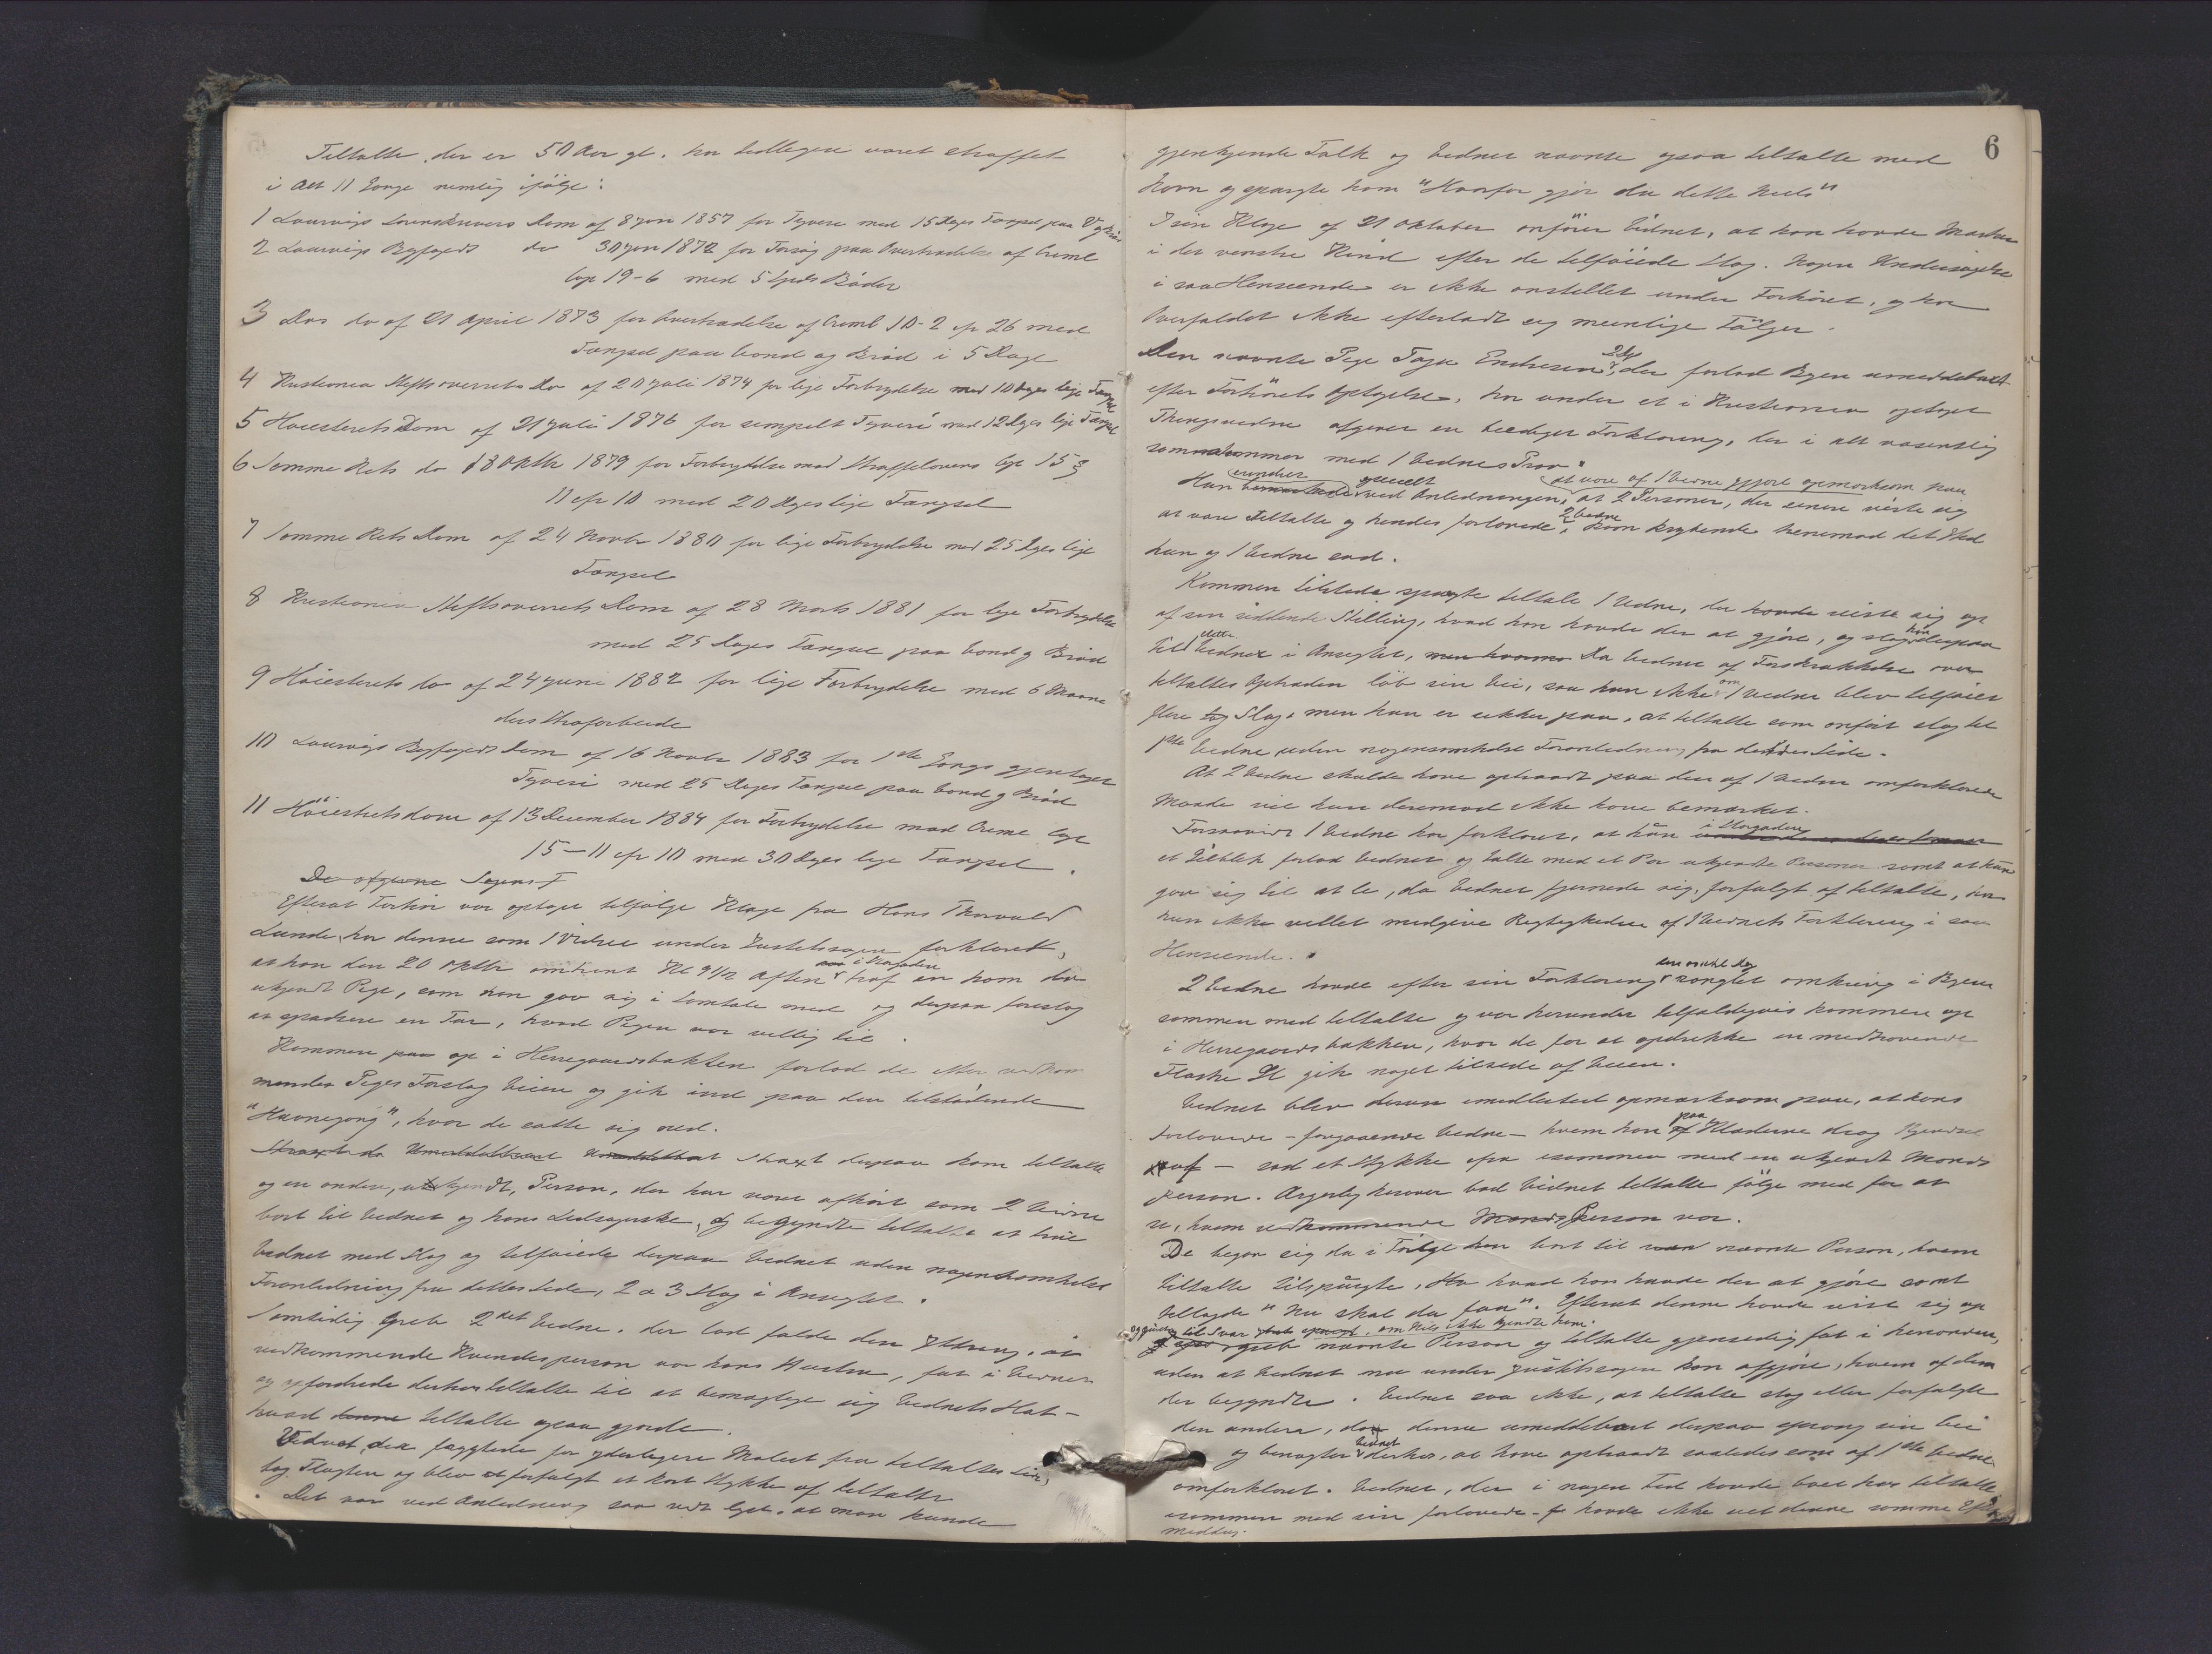 Tiltalte, der er 50 Aar gl. har tidligere været straffet
i Alt 11 Gange nemlig ifølge:
1 Laurvigs Sorenskrivers Dom af 8 Juni 1857 for Tyveri med 15 Dages Fængsel paa V og Brød
2 Laurvigs Byfogeds do 30 Juni 1872 for Forsøg paa Overtrædelse af Criml
Cap 19-6 med 5 Spds Bøder
3 Das do af 21 April 1873 for Overtrædelse af Criml 10-2 cfr 26 med
Fængsel paa Vand og Brød i 5 Dage
4 Kristiania Stiftsoverrets Do af 20 Juli 1874 for lige Forbrydelse med 10 Dages lige Fængsel
5 Høiesterets Dom af 21 Juli 1876 for simpelt Tyveri med 12 Dages lige Fængsel
6 Samme Rets do 18 Oktbr 1879 for Forbrydelse mod Straffelovens Cap 15 §
11 cfr 10 med 20 Dages lige Fængsel
7 Samme Rets Dom af 24 Novbr 1880 for lige Forbrydelse med 25 Dages lige
Fængsel
8 Kristiania Stiftsoverrets Dom af 28 Marts 1881 for lige Forbrydelse
med 25 Dages Fængsel paa Vand og Brød
9 Høiesterets do af 24 Juni 1882 for lige Forbrydelse med 6 Maane
ders Strafarbeide
10 Laurvigs Byfogeds Dom af 16 Novbr 1883 for 1ste Gangs gjentaget
Tyveri med 25 Dages Fængsel paa Vand og Brød
11 Høiesteretsdom af 13 December 1884 for Forbrydelse mod Crime Cap
15-11 cfr 10 med 30 Dages lige Fængsel.
De Sagens
Efterat Forhør var optaget tilfølge Klage fra Hans Thorvald
Lunde, har denne som 1 Vidne under Justitssagen forklaret,
at han den 20 Oktbr omtrent Kl 9 1/2 Aften i Storgaden traf en ham da
ukjendt Pige, som han gav sig i Samtale med og derpaa foreslog
at spadsere en Tur, hvad Pigen var villig til.
Kommen paa op i Herregaardsbakken forlod de efter vedkom
mendes Piges Forslag Veien og gik ind paa den tilstødende
"Havnegang", hvor de satte sig ned.
Straxt da Umiddelbart Umiddelbart Straxt derpaa kom tiltalte
og en anden, ukjendt, Person, der har været afhørt som 2 Vidne
bort til Vidnet og hans Ledsagerske, og begyndte tiltalte at true
Vidnet med Slag og tilføiede derpaa Vidnet uden nogensomhelst
Foranledning fra dettes Side, 2 a 3 Slag i Ansigtet.
Samtidig greb 2det Vidne, der lod falde den Ytring, at
vedkommende Kvindesperson var hans Hustru, fat i Vidnet
og opfordrede derhos tiltalte til at bemægtige sig Vidnets Hat-
hvad denne tiltalte ogsaa gjorde.
Vidnet, der frygtede for yderligere Molest fra tiltaltes Side,
tog Flugten og blev forfulgt et kort Stykke af tiltalte
Det var ved Anledning saa vidt lyst, at man kunde
6
gjenkjende Folk og Vidnet nævnte ogsaa tiltalte med
Navn og spurgte ham "Hvorfor gjør du dette Niels"
I sin Klage af 21 Oktober anfører Vidnet, at han havde Mærker
i det venstre Kind efter de tilføiede Slag. Nogen Undersøgelse
i saa Henseende er ikke anstillet under Forhøret, og har
Overfaldet ikke efterladt sig meenlige Følger.
Den nævnte Pige Endresen, der forlod Byen umiddelbart
efter Forhørets Optagelse, har under et i Kristiania optaget
Thingsvidne afgivet en beediget Forklaring, der i alt væsentlig
sammenstemmer med 1 Vidnes Prov.
Hun erindrer specielt ved Anledningen, at være af 1 Vidne gjort opmærksom paa
at 2 Personer, der senere viste sig
at være tiltalte og hendes forlovede, 2 Vidne, kom krybende henimod det Sted
hun og 1 Vidne sad.
Kommen tilstede spurgte tiltalte 1 Vidne, der havde reist sig op
af sin siddende Stilling, hvad han havde der at gjøre, og slog han derpaa
til dette Vidne i Ansigtet, Da Vidnet af Forskrækkelse over
tiltaltes Optræden løb sin Vei, saa hun ikke om 1 Vidne blev tilføiet
flere Slag, men hun er sikker paa, at tiltalte som anført slog til
1ste Vidne uden nogensomhelst Foranledning fra dettes Side.
At 2 Vidne skulde have optraadt paa den af 1 Vidne omforklarede
Maade vil hun derimod ikke have bemærket.
Forsaavidt 1 Vidne har forklaret, at hun i Storgaden
et Øieblik forlod Vidnet og talte med et Par ukjendte Personer samt at hun
gav sig til at le, da Vidnet fjernede sig, forfulgt af tiltalte, har
hun ikke villet medgive Rigtigheden af 1 Vidnets Forklaring i saa
Henseende.
2 Vidne havde efter sin Forklaring ranglet omkring i Byen
sammen med tiltalte og var herunder tilfældigvis kommen op
i Herregaardsbakken, hvor de for at opdrikke en medhavende
Flaske Øl gik noget tilside af Veien.
Vidnet blev derunder imidlertid opmærksom paa, at hans
Forlovede - foregaaende Vidne - hvem han paa Klæderne drog Kjendsel
af - sad et Stykke ifra isammen med en ukjendt Mands
person. Ærgerlig herover bad Vidnet tiltalte følge med for at
se, hvem vedkommende Mandsperson var.
De begav sig da i Følge bort til nævnte Person, hvem
tiltalte tilspurgte, hvad han havde der at gjøre samt
tillagde "Nu skal du faa". Efterat denne havde reist sig op
og givet til Svar om Niels ikke kjendte ham.
greb nævnte Person og tiltalte gjensidig fat i hverandre,
uden at Vidnet nu under Justitssagen kan afgjøre, hvem af dem
der begyndte. Vidnet saa ikke, at tiltalte slog eller forfulgte
den anden, da denne umiddelbart derpaa sprang sin Vei
og benægter Vidnet derhos, at have optraadt saaledes som af 1ste Vidne
omforklaret. Vidnet, der i nogen Tid havde boet hos tiltalte
isammen med sin forlovede - havde ikke set denne samme Efter
middag.